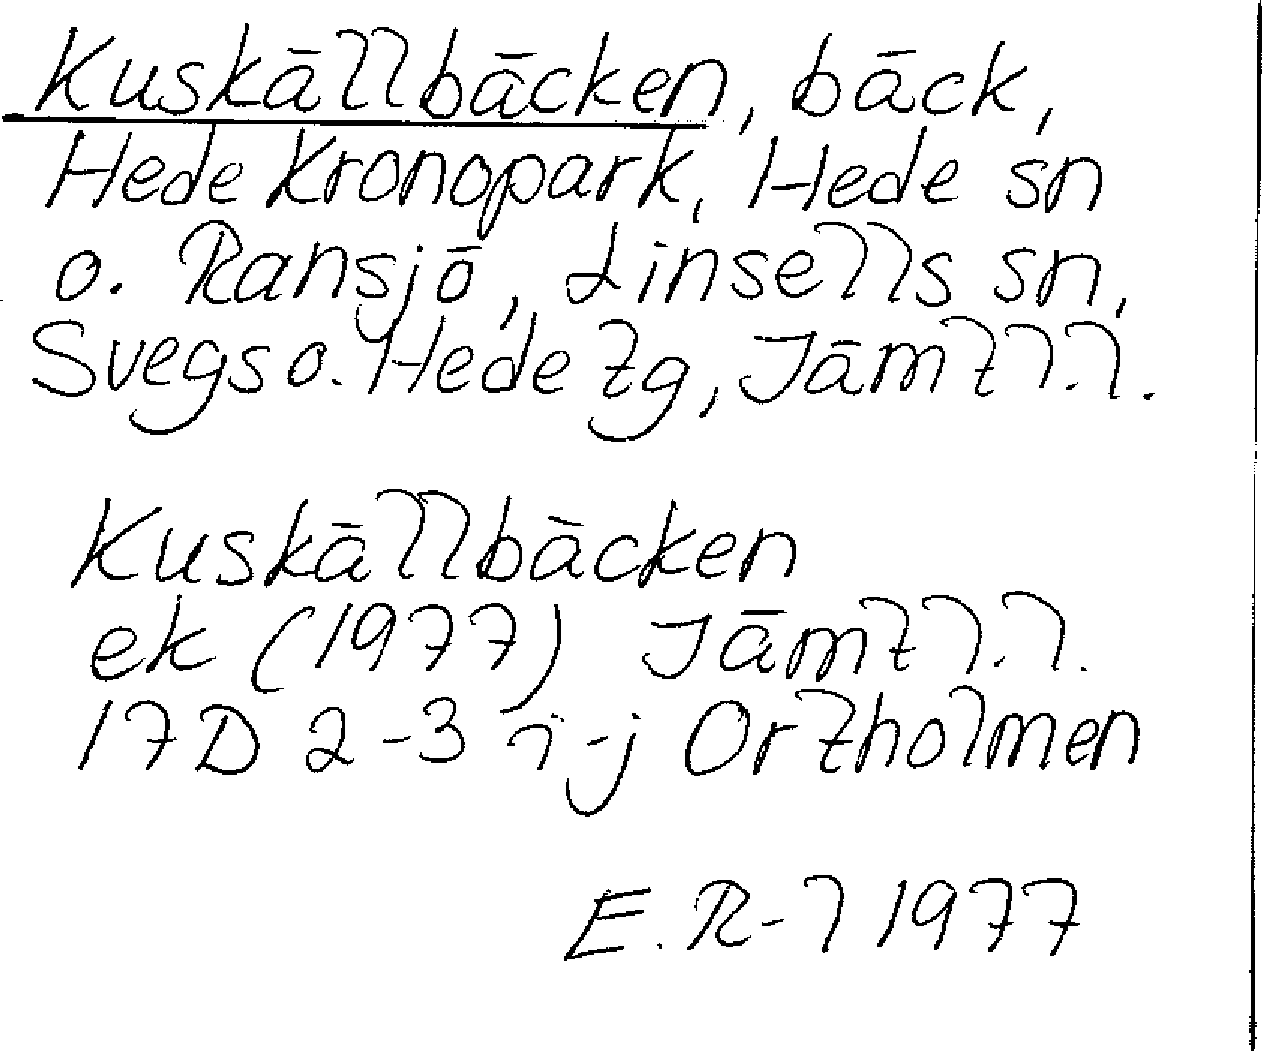 Kuskällbäcken, bäck,
Hede Kronopark, Hede sn
o. Ransjö, Linsells sn,
Svegs o. Hede tg, Jämtl. l.
Kuskällbäcken
ek (1977) Jämtl. l.
17D 2-3 i-j Ortholmen
E. R-l 1977